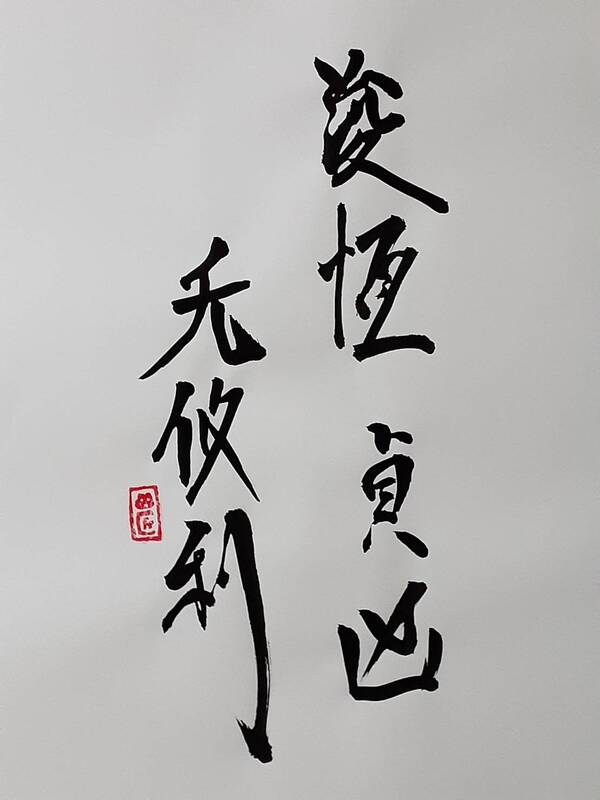 夐恆貞凶
无攸利